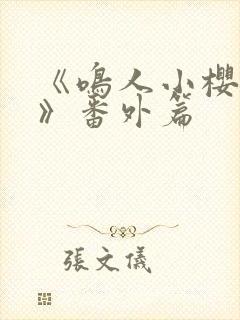 《鳴人小櫻
》番外篇
張文儀